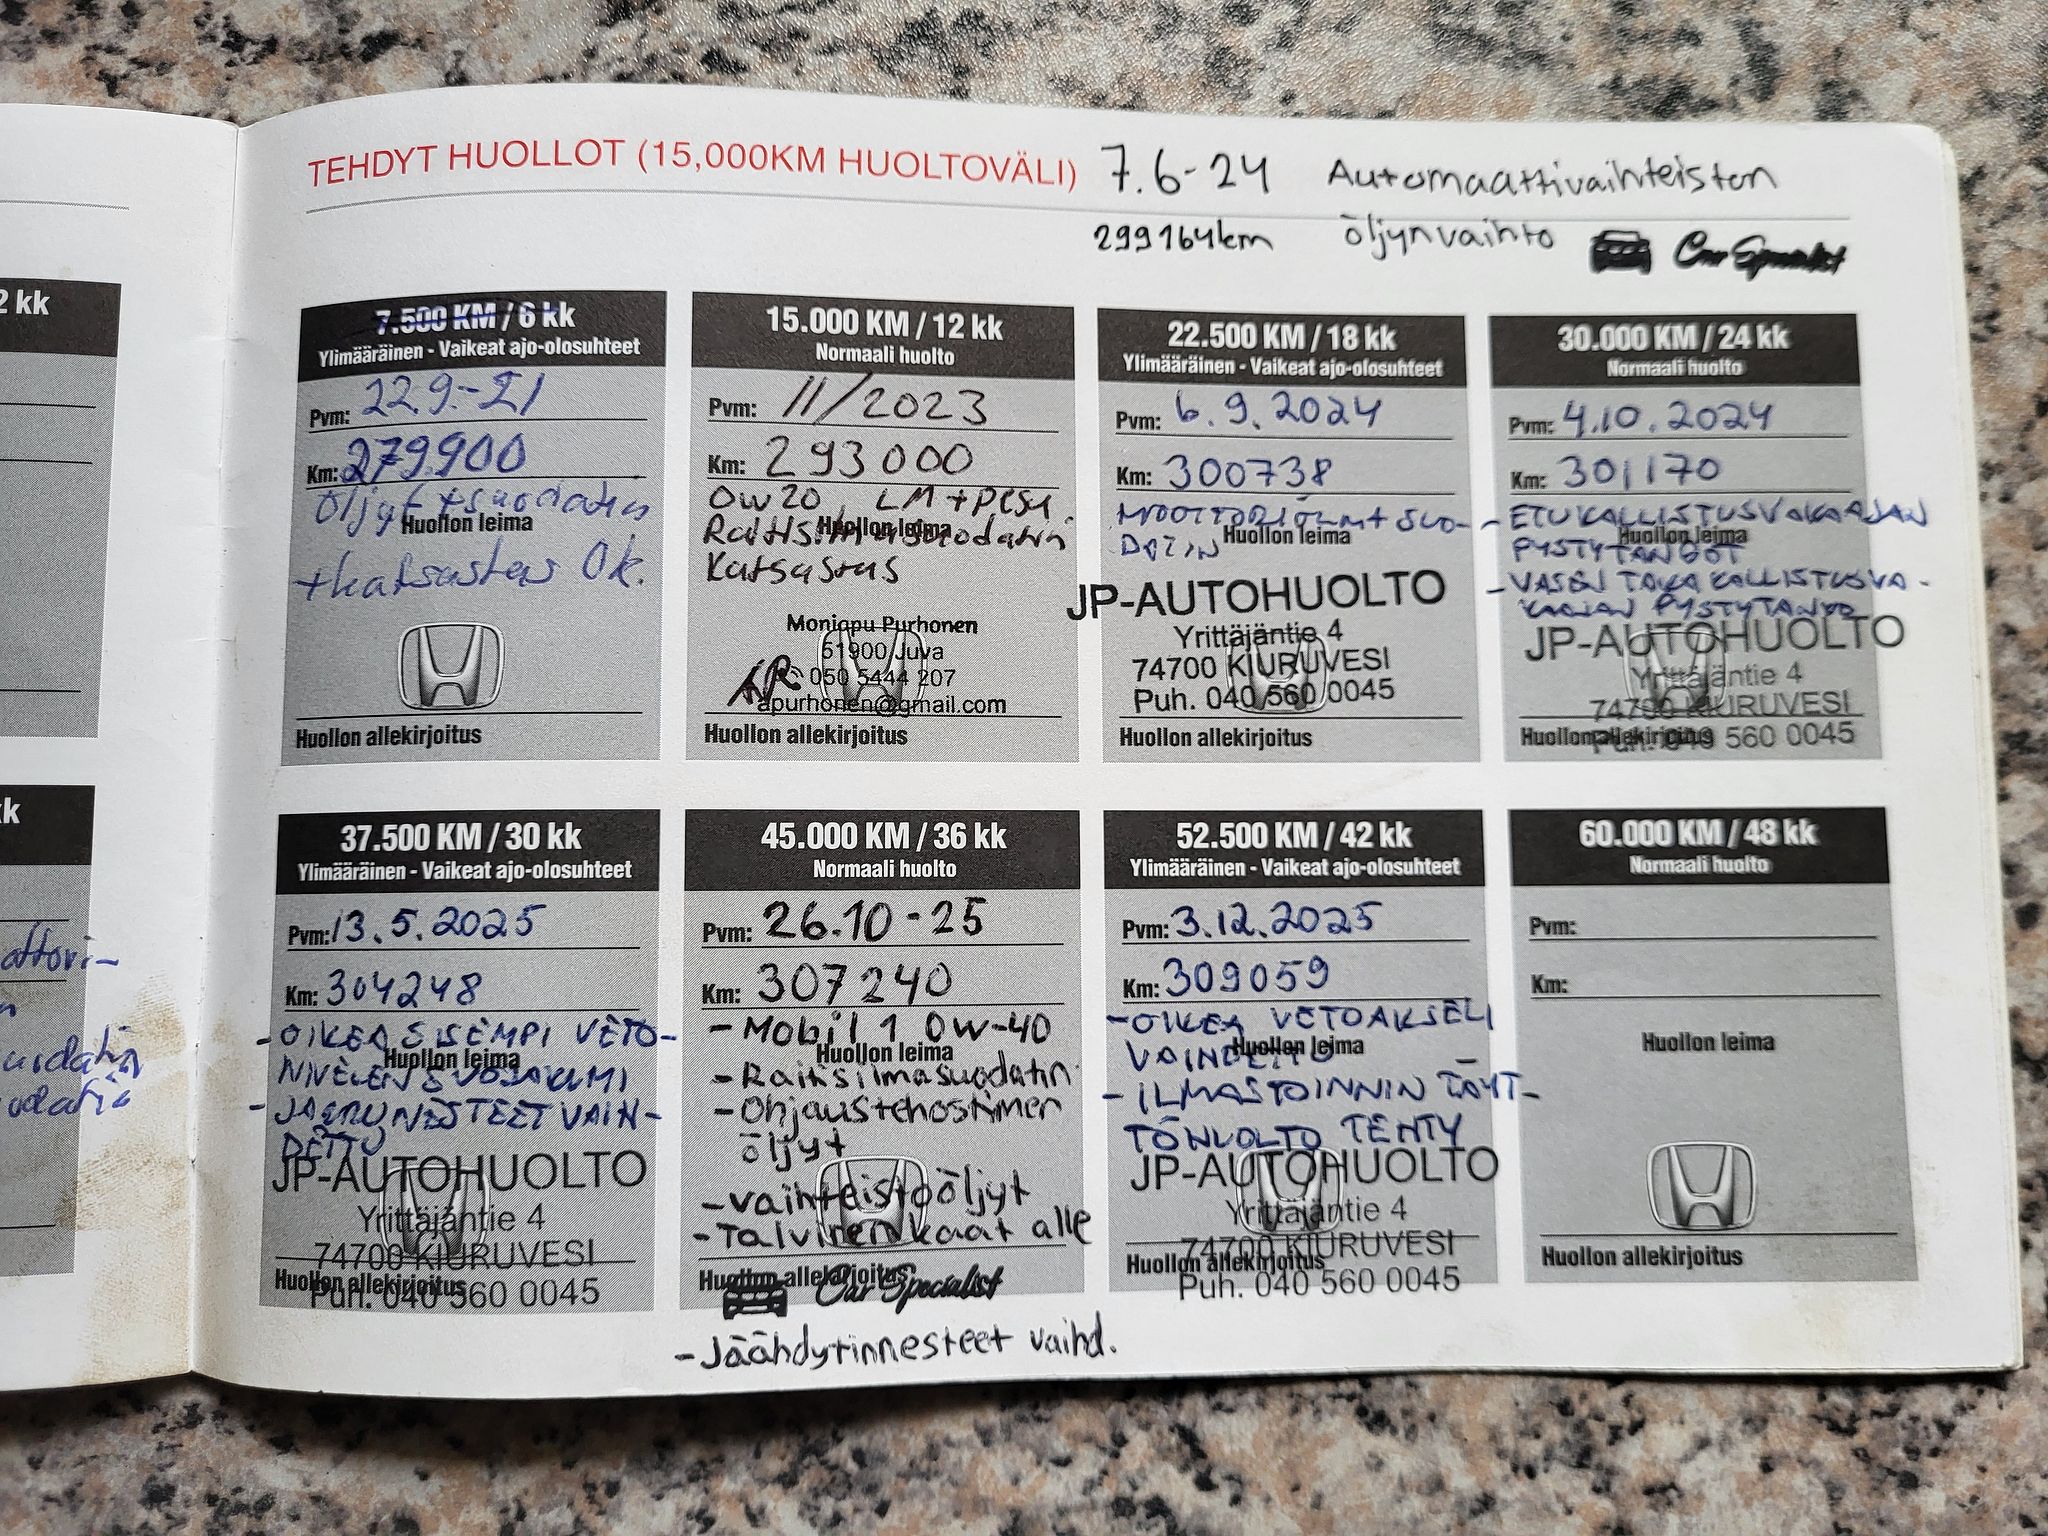 TEHDYT HUOLLOT (15,000KM HUOLTOVÄLI) 7.6-24 Automaattivaihteiston
299164km öljynvaihto Car Specialist
2 kk
7.500 KM / 6 kk
Ylimääräinen - Vaikeat ajo-olosuhteet
Pvm: 22.9.-21
Km: 279.900
öljyt + suodatin
Huollon leima
+katsastus Ok.
Huollon allekirjoitus
15.000 KM / 12 kk
Normaali huolto
Pvm: 11/2023
Km: 293000
0W20 LM + pesu.
Raitisilmasuodatin
Huollon leima
Katsastus
Moniapu Purhonen
51900 Juva
050 5444 207
apurhonen@gmail.com
Huollon allekirjoitus
22.500 KM / 18 kk
Ylimääräinen - Vaikeat ajo-olosuhteet
Pvm: 6.9.2024
Km: 300738
MOOTTORIÖLJY + SUO-
DATIN
Huollon leima
JP-AUTOHUOLTO
Yrittäjäntie 4
74700 KIURUVESI
Puh. 040 560 0045
Huollon allekirjoitus
30.000 KM / 24 kk
Normaali huolto
Pvm: 4.10.2024
Km: 301170
- ETUKALLISTUSVAKAAJAN
Huollon leima
PYSTYTANGOT
- VASEN TAKA KALLISTUSVA-
KAAJAN PYSTYTANKO
JP-AUTOHUOLTO
Yrittäjäntie 4
74700 KIURUVESI
Puh. 040 560 0045
Huollon allekirjoitus
kk
37.500 KM / 30 kk
Ylimääräinen - Vaikeat ajo-olosuhteet
Pvm: 13.5.2025
Km: 304248
- OIKEA SISEMPI VETO-
Huollon leima
NIVELEN SUOJAKUMI
- JARRUNESTEET VAIH-
DETTU
JP-AUTOHUOLTO
Yrittäjäntie 4
74700 KIURUVESI
Huollon allekirjoitus
Puh. 040 560 0045
45.000 KM / 36 kk
Normaali huolto
Pvm: 26.10-25
Km: 307240
- Mobil 1 0W-40
Huollon leima
- Raitisilmasuodatin
- Ohjaustehostimen
öljyt
- vaihteistoöljyt
- Talvirenkaat alle
Huollon allekirjoitus
Car Specialist
- Jäähdytinnesteet vaihd.
52.500 KM / 42 kk
Ylimääräinen - Vaikeat ajo-olosuhteet
Pvm: 3.12.2025
Km: 309059
- OIKEA VETOAKSELI
VAIHDETTU
Huollon leima
- ILMASTOINNIN TÄYT-
TÖHUOLTO TEHTY
JP-AUTOHUOLTO
Yrittäjäntie 4
74700 KIURUVESI
Huollon allekirjoitus
Puh. 040 560 0045
60.000 KM / 48 kk
Normaali huolto
Pvm:
Km:
Huollon leima
Huollon allekirjoitus